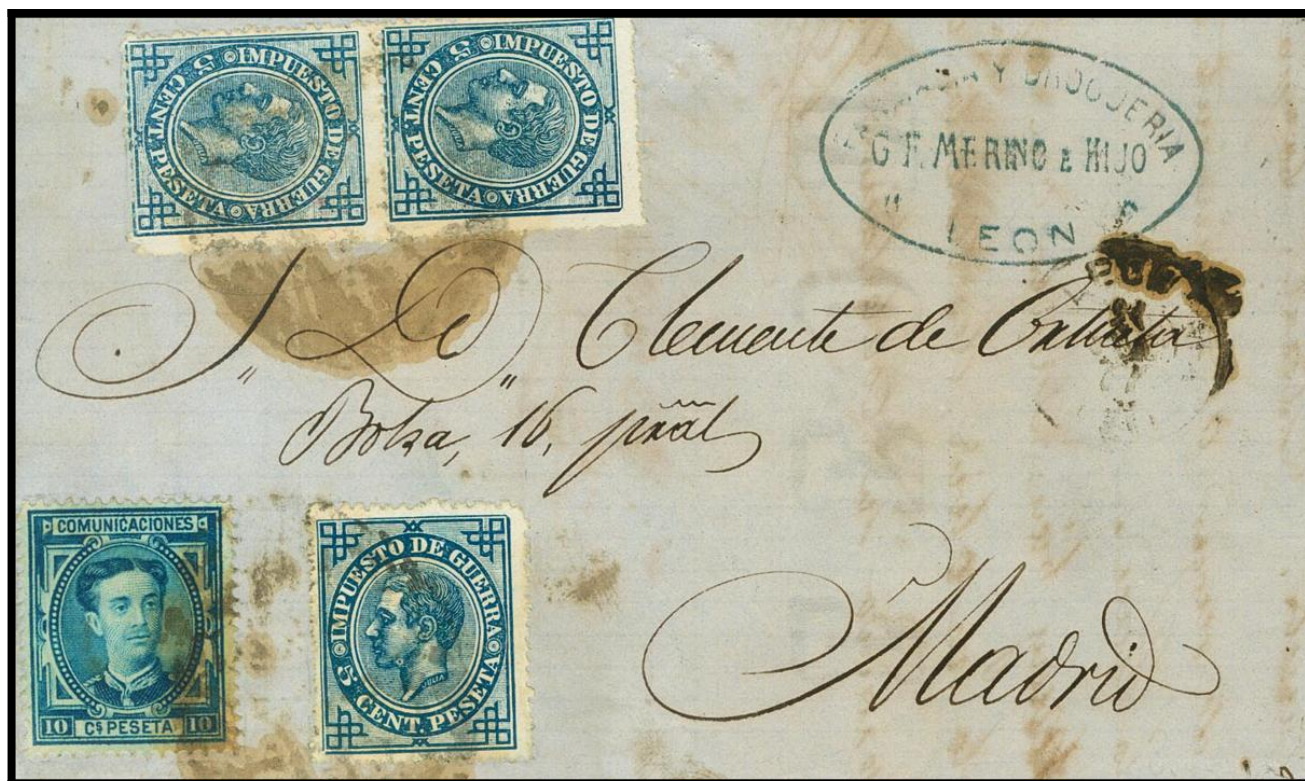 IMPUESTO DE GUERRA
5 CENT. PESETA
IMPUESTO DE GUERRA
5 CENT. PESETA
Y DROGUERIA
G. F. MERINO E HIJO
LEON
S. D. Clemente de
Bolsa, 16, pral
COMUNICACIONES
10 Cs PESETA 10
IMPUESTO DE GUERRA
5 CENT. PESETA
JULIA
Madrid